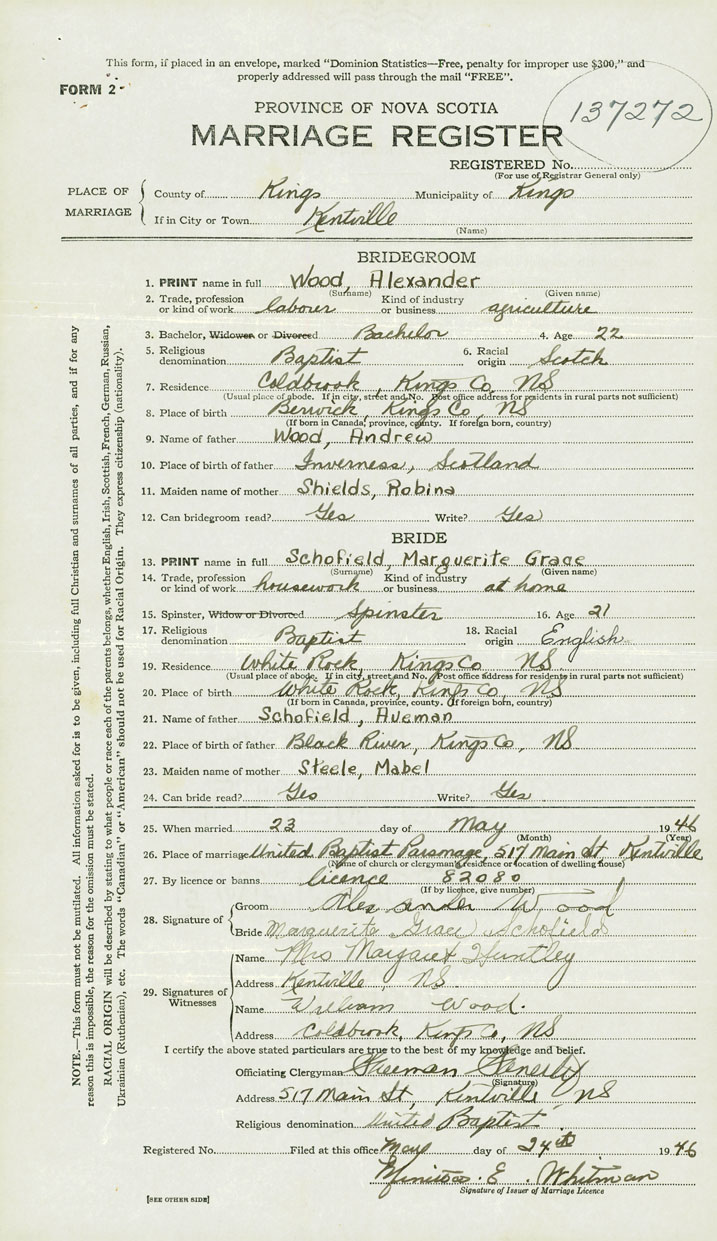 This form, if placed in an envelope, marked "Dominion Statistics—Free, penalty for improper use $300," and
properly addressed will pass through the mail "FREE".
FORM 2
137272
PROVINCE OF NOVA SCOTIA
MARRIAGE REGISTER
REGISTERED No.
(For use of Registrar General only)
PLACE OF MARRIAGE
County of Kings Municipality of Kings
If in City or Town Kentville
(Name)
BRIDEGROOM
1. PRINT name in full Wood, Alexander
(Surname) (Given name)
2. Trade, profession or kind of work labourer Kind of industry or business agriculture
3. Bachelor, Widower or Divorced Bachelor 4. Age 22
5. Religious denomination Baptist 6. Racial origin Scotch
7. Residence Coldbrook, Kings Co, NS
(Usual place of abode. If in city, street and No. Post office address for residents in rural parts not sufficient)
8. Place of birth Berwick, Kings Co, NS
(If born in Canada, province, county. If foreign born, country)
9. Name of father Wood, Andrew
10. Place of birth of father Inverness, Scotland
11. Maiden name of mother Shields, Robina
12. Can bridegroom read? Yes Write? Yes
BRIDE
13. PRINT name in full Schofield, Marguerite Grace
(Surname) (Given name)
14. Trade, profession or kind of work housework Kind of industry or business at home
15. Spinster, Widow or Divorced Spinster 16. Age 21
17. Religious denomination Baptist 18. Racial origin English
19. Residence White Rock, Kings Co NS
(Usual place of abode. If in city, street and No. Post office address for residents in rural parts not sufficient)
20. Place of birth White Rock, Kings Co, NS
(If born in Canada, province, county. If foreign born, country)
21. Name of father Schofield, Aveman
22. Place of birth of father Black River, Kings Co, NS
23. Maiden name of mother Steele, Mabel
24. Can bride read? Yes Write? Yes
25. When married 23 day of May 1946
(Month) (Year)
26. Place of marriage United Baptist Parsonage, 517 Main St Kentville
(Name of church or clergyman's residence or location of dwelling house)
27. By licence or banns licence 82080
(If by licence, give number)
28. Signature of
Groom Alexander Wood
Bride Marguerite Grace Schofield
29. Signatures of Witnesses
Name Mrs Margaret Huntley
Address Kentville NS
Name William Wood.
Address Coldbrook, Kings Co, NS
I certify the above stated particulars are true to the best of my knowledge and belief.
Officiating Clergyman Freeman Fenerty
(Signature)
Address 517 Main St, Kentville NS
Religious denomination United Baptist
Registered No. Filed at this office May day of 24th 1946
E. Whitman
Signature of Issuer of Marriage Licence
[SEE OTHER SIDE]
NOTE.—This form must not be mutilated. All information asked for is to be given, including full Christian and surnames of all parties, and if for any
reason this is impossible, the reason for the omission must be stated.
RACIAL ORIGIN will be described by stating to what people or race each of the parents belongs, whether English, Irish, Scottish, French, German, Russian,
Ukrainian (Ruthenian), etc. The words "Canadian" or "American" should not be used for Racial Origin. They express citizenship (nationality).